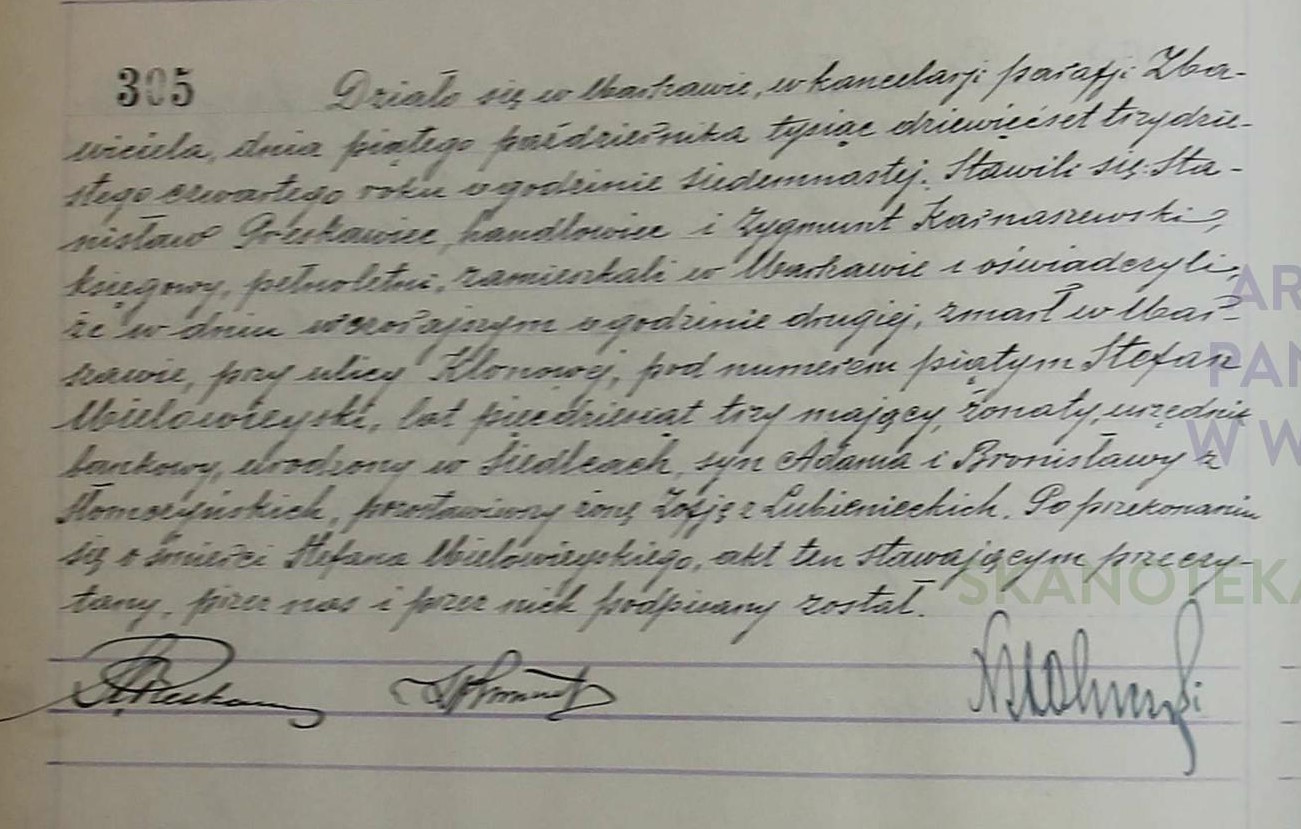 305 Działo się w Warszawie, w kancelarji parafji Zba-
wiciela, dnia piątego października tysiąc dziewięćset trzydzie-
stego czwartego roku o godzinie siedemnastej. Stawili się: Sta-
nisław Preskawiec, handlowiec i Zygmunt Karnaszewski,
księgowy, pełnoletni, zamieszkali w Warszawie i oświadczyli,
że w dniu wczorajszym o godzinie drugiej, zmarł w War-
szawie, przy ulicy Klonowej, pod numerem piątym Stefan
Wielowieyski, lat pięćdziesiąt trzy mający, żonaty, urzędnik
bankowy, urodzony w Siedlcach, syn Adama i Bronisławy z
Słomczyńskich, pozostawiwszy żonę Zofję z Lubienieckich. Po przekonaniu
się o śmierci Stefana Wielowieyskiego, akt ten stawającym przeczy-
tany, przez nas i przez nich podpisany został.
AR
PAN
W W
SKANOTEKA